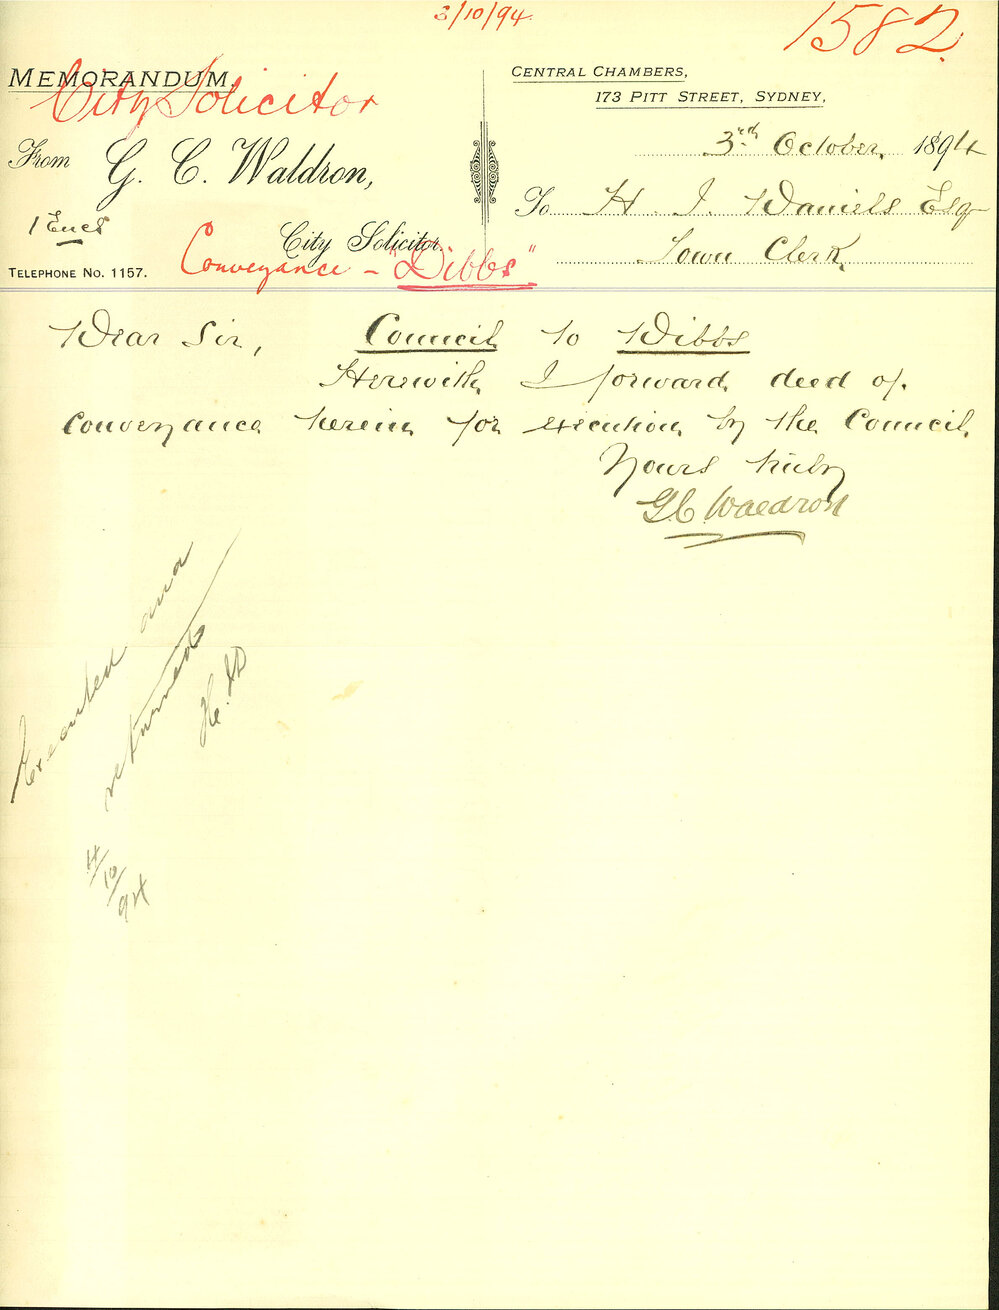 3/10/94.
1582.
MEMORANDUM,
City Solicitor
From G. C. Waldron,
1 Encs
City Solicitor.
TELEPHONE NO. 1157.
Conveyance - "Dibbs"
CENTRAL CHAMBERS,
173 PITT STREET, SYDNEY,
3rd October 1894
To H. J. Daniels Esq
Town Clerk
Dear Sir, Council to Dibbs
Herewith I forward deed of
conveyance herein for execution by the Council.
Yours truly
G.C. Waldron
Executed and
returned
H.J.D
4/10/94